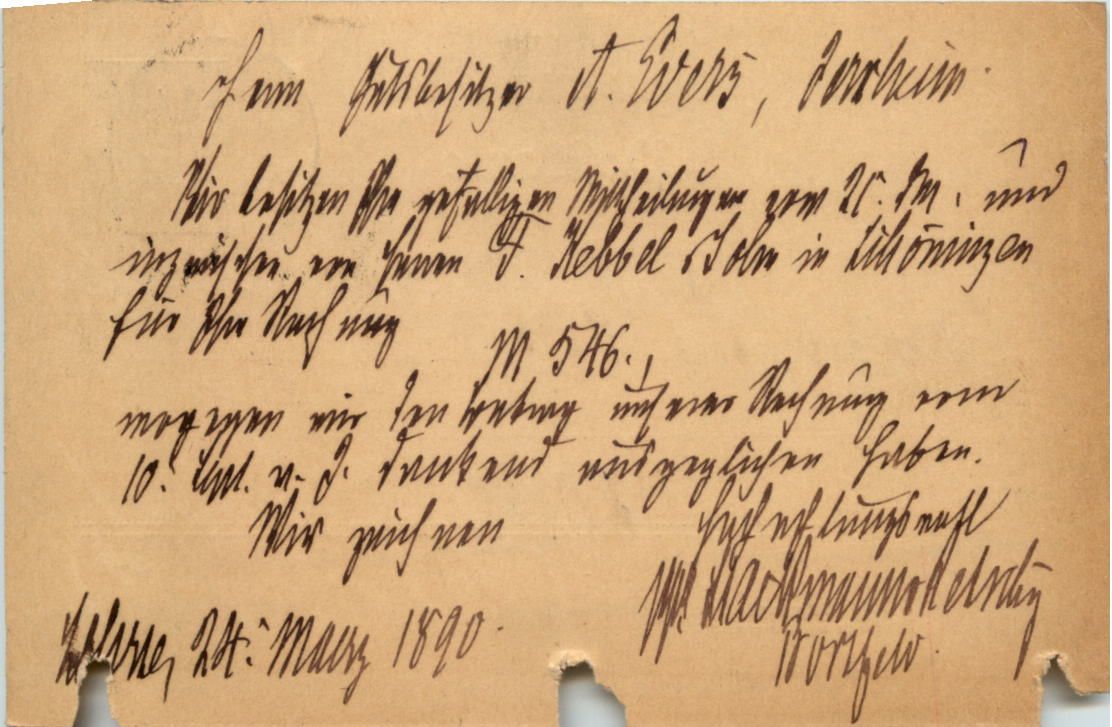 Herrn Gutsbesitzer A. Evers, Jerxheim.
Wir besitzen Ihre gefälligen Mittheilungen vom 21. dM. und
inzwischen von Herren F. Hebbel Sohn in Schöningen
für Ihre Rechnung
M 546.,
wogegen wir den Betrag unserer Rechnung vom
10. Spt. v. J. dankend ausgeglichen haben.
Wir zeichnen
Hochachtungsvoll
24. Maerz 1890.